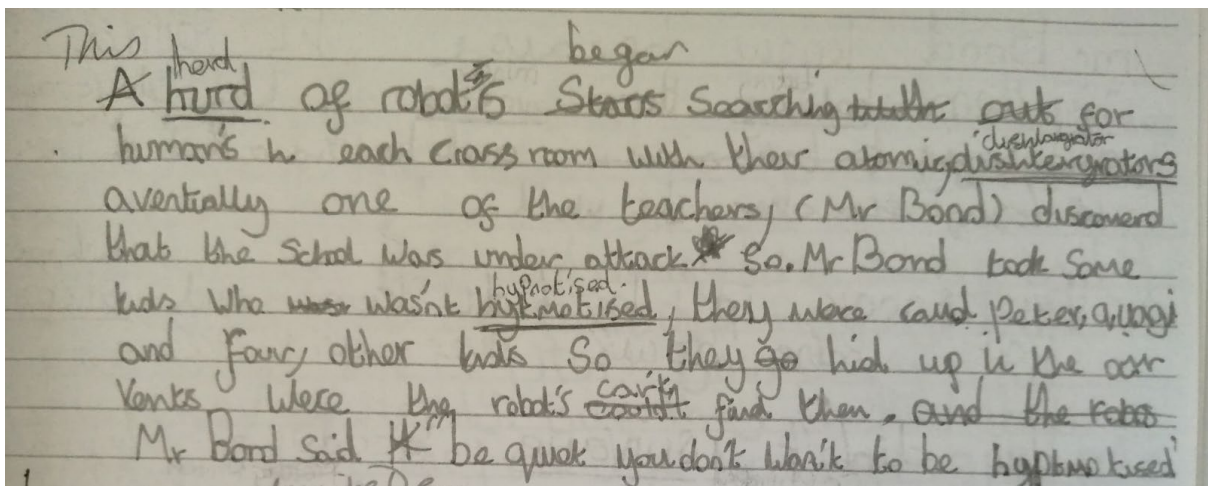 This herd began
A hurd of robot's Stars Searching out for
human's in each Crassroom with their atomic, dishintergrators
disintargrator
aventially one of the teachers, (Mr Bond) discoverd
that the School was under attack So. Mr Bond took Some
hypnotised.
kids who wasn't hyktmotised, they were caud Peter, quagi
and four, other kid's So they go hid up in the air
Vents Were the robot's can't couldn't find them. and the robo
Mr Bond said "be quiet you don't wan't to be hyptmotised